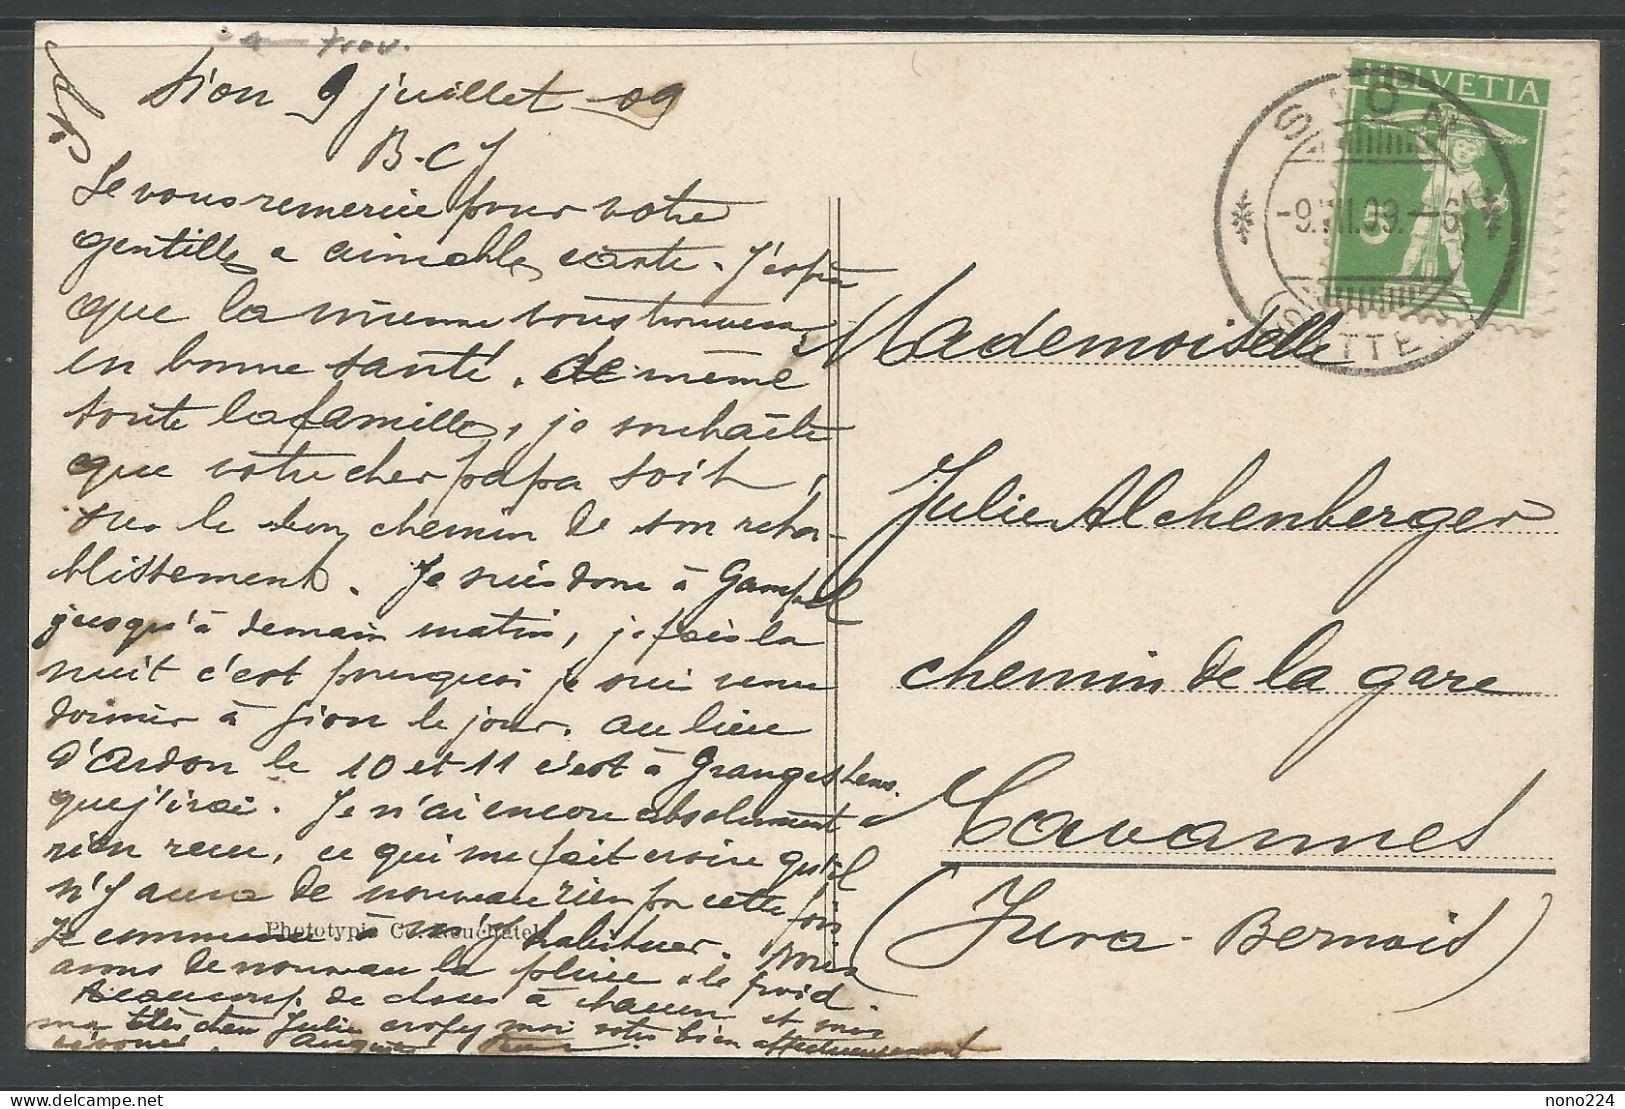 Sion 9 juillet 09
B-CJ
Je vous remercie pour votre
gentille & aimable carte. J'espère
que la mienne vous trouvera
en bonne santé, de même
toute la famille, je souhaite
que votre cher papa soit
sur le bon chemin de son réta-
blissement. Je suis donc à Gampel
jusqu'à demain matin, je fais la
nuit c'est pourquoi je suis venu
dormir à Sion le jour. au lieu
d'Ardon le 10 et 11 c'est à Granges Lens.
que j'irai. Je n'ai encore absolument
rien reçu, ce qui me fait croire qu'il
n'y aura de nouveau rien pr cette fois
Je commence à m'y habituer. Nous
avons de nouveau la pluie & le froid.
Beaucoup de choses à chacun et vous
ma très chère Julie croyez moi votre bien affectueusement
Phototypie Co. Neuchâtel
HELVETIA
5
SION
-9.VII.09.-6
Mademoiselle
Julie Alchenberger
chemin de la gare
Tavannes
(Jura-Bernois)
nono224
www.delcampe.net